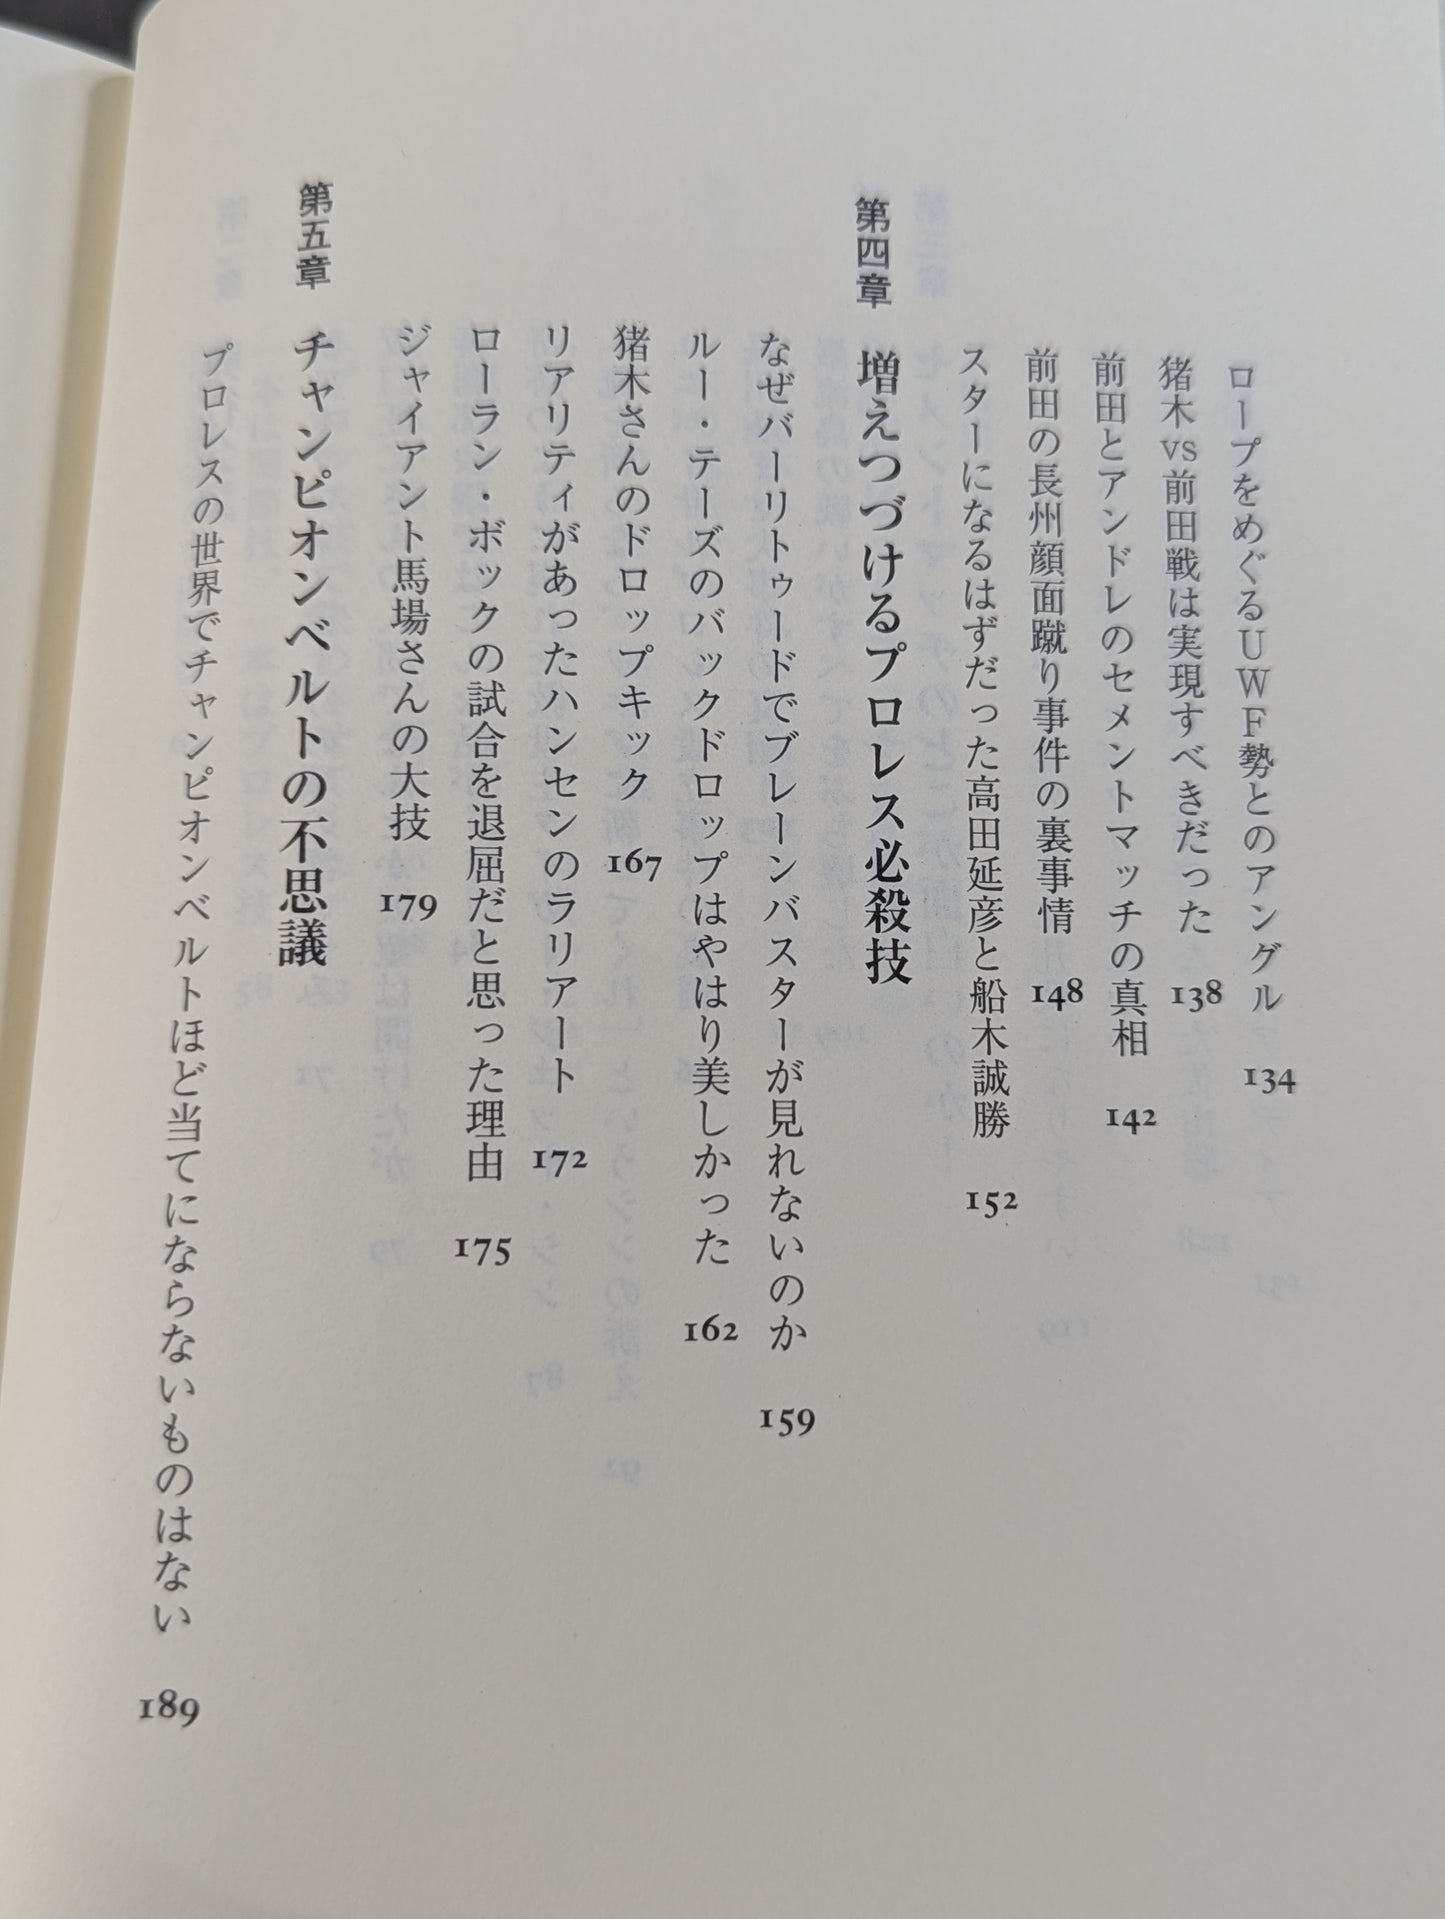 ロープをめぐるUWF勢とのアングル 134
猪木vs前田戦は実現すべきだった 138
前田とアンドレのセメントマッチの真相 142
前田の長州顔面蹴り事件の裏事情 148
スターになるはずだった高田延彦と船木誠勝 152
第四章 増えつづけるプロレス必殺技
なぜバーリトゥードでブレーンバスターが見れないのか 159
ルー・テーズのバックドロップはやはり美しかった 162
猪木さんのドロップキック 167
リアリティがあったハンセンのラリアート 172
ローラン・ボックの試合を退屈だと思った理由 175
ジャイアント馬場さんの大技 179
第五章 チャンピオンベルトの不思議
プロレスの世界でチャンピオンベルトほど当てにならないものはない 189